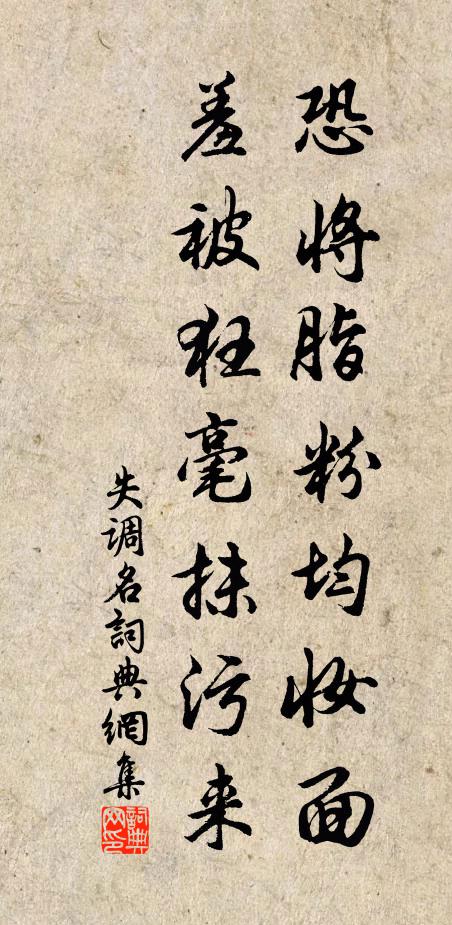 恐将脂粉均妆面
羞被狂毫抹污来
失调名詞典網集
詞典网印